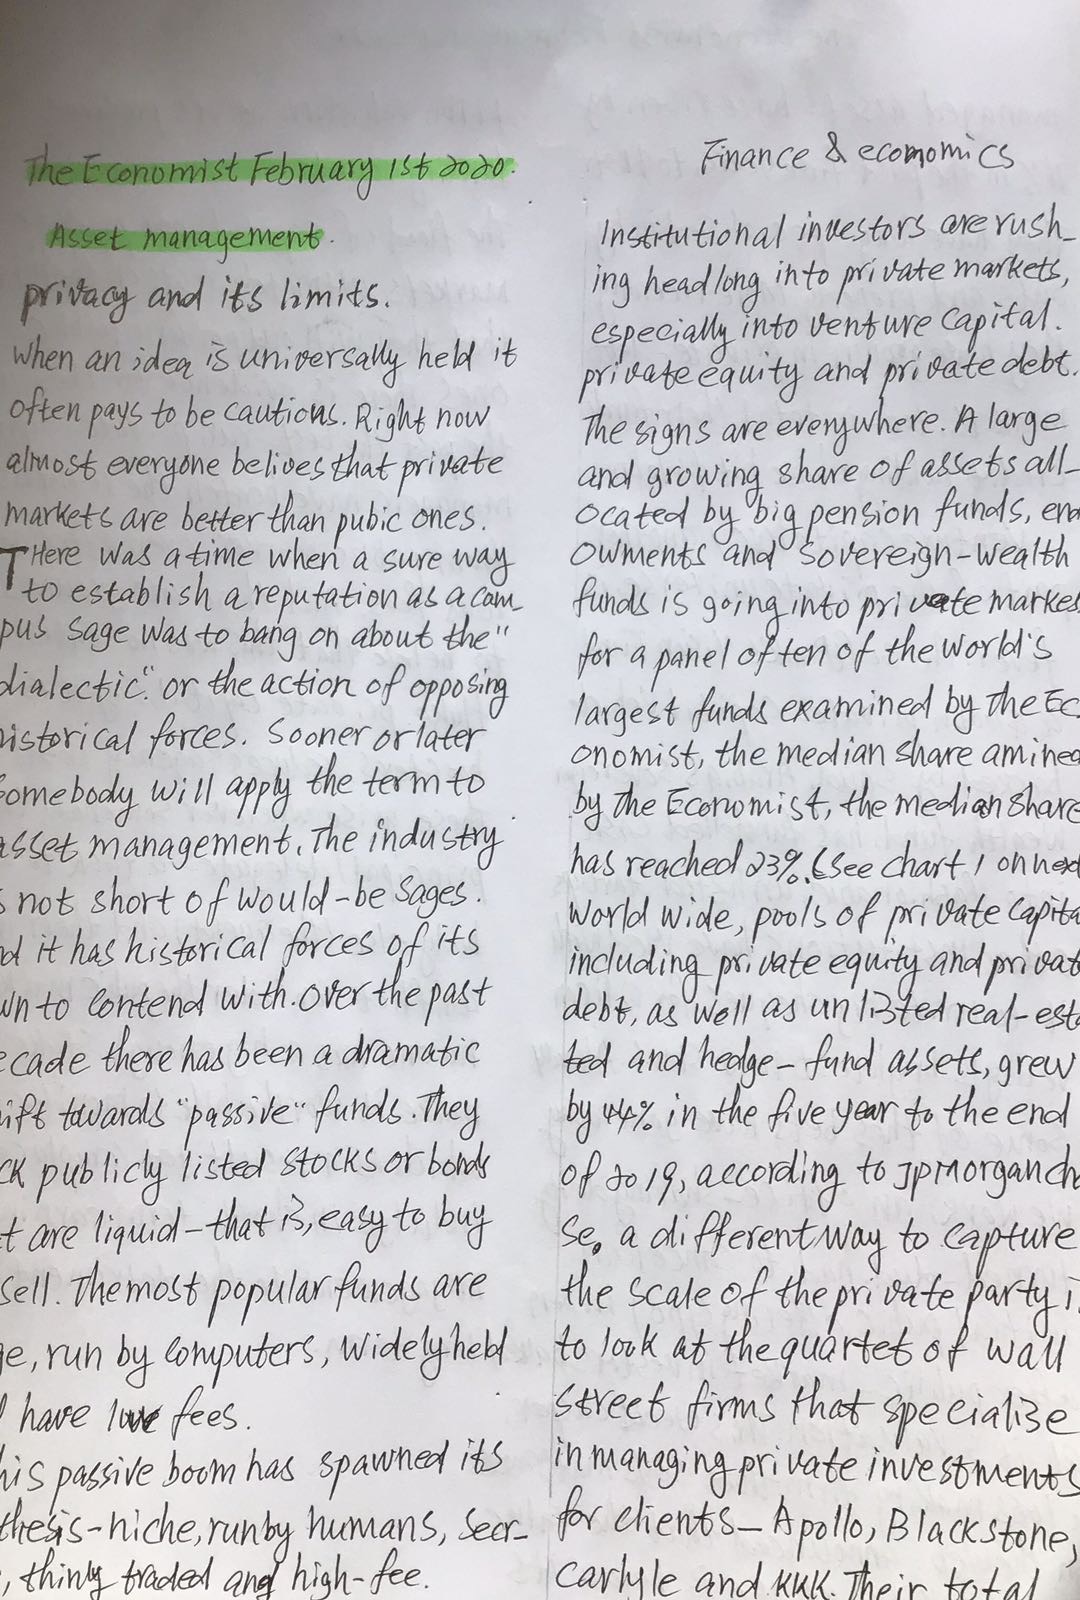 The Economist February 1st 2020.
Asset management.
privacy and its limits.
When an idea is universally held it
often pays to be cautions. Right now
almost everyone belives that private
markets are better than pubic ones.
THere was a time when a sure way
to establish a reputation as a cam_
pus sage was to bang on about the "
dialectic". or the action of opposing
historical forces. Sooner or later
Somebody will apply the term to
asset management. The industry
s not short of would-be Sages.
nd it has historical forces of its
wn to contend with. Over the past
ecade there has been a dramatic
ift towards "passive" funds. They
ck publicly listed stocks or bonds
t are liquid-that is, easy to buy
sell. The most popular funds are
ge, run by computers, widely held
have low fees.
his passive boom has spawned its
thesis-niche, run by humans, secr-
, thinly traded and high-fee.
Finance & economics
Institutional investors are rush_
ing headlong into private markets,
especially into venture capital.
private equity and private debt.
The signs are everywhere. A large
and growing share of assets all_
ocated by big pension funds, end
owments and Sovereign-wealth
funds is going into private marke
for a panel of ten of the world's
largest funds examined by the Ec
onomist, the median share amined
by the Economist, the median share
has reached 23%. (See chart 1 on next
World wide, pools of private capita
including private equity and privat
debt, as well as unlisted real-esta
ted and hedge-fund assets, grew
by 44% in the five year to the end
of 2019, according to JpMorgan cha
se. a different way to capture
the scale of the private party i
to look at the quartet of wall
street firms that specialise
in managing private investments
for clients-Apollo, Blackstone,
Carlyle and KKK. Their total